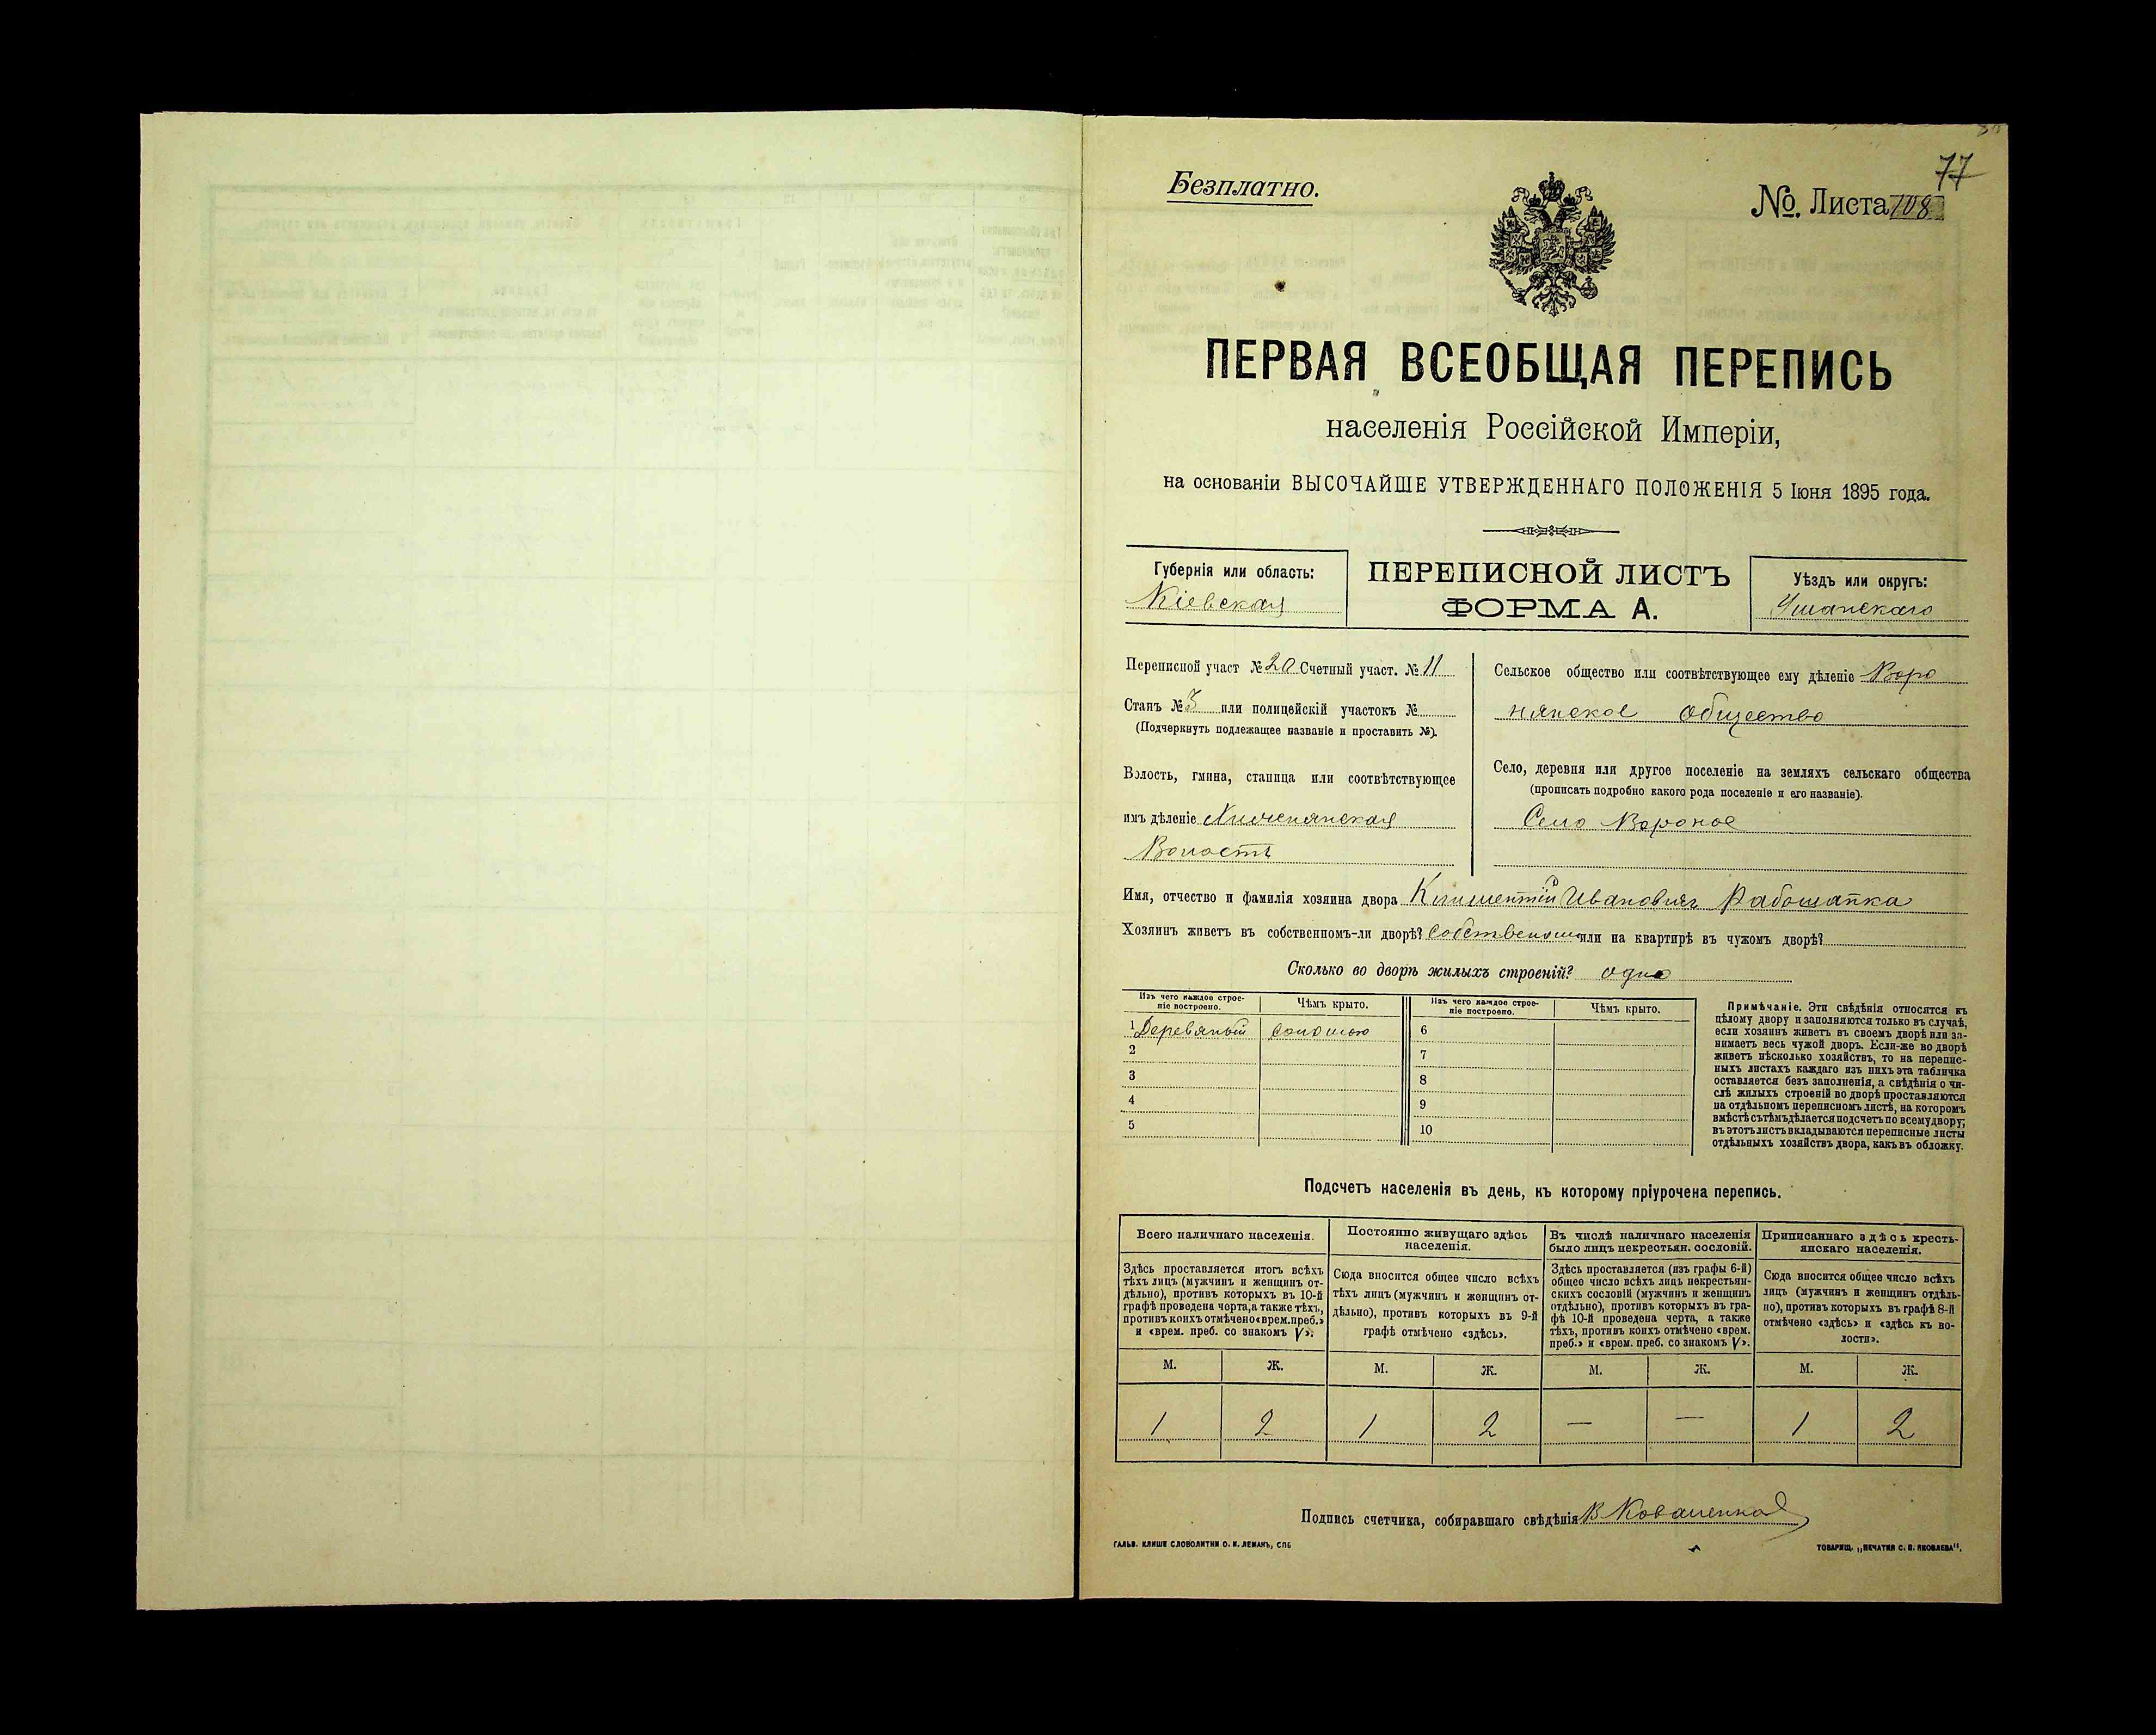 Безплатно.
77
№. Листа 108
ПЕРВАЯ ВСЕОБЩАЯ ПЕРЕПИСЬ
населенія Россійской Имперіи,
на основаніи ВЫСОЧАЙШЕ УТВЕРЖДЕННАГО ПОЛОЖЕНІЯ 5 Іюня 1895 года.
Губернія или область:
Кіевская
ПЕРЕПИСНОЙ ЛИСТЪ
ФОРМА А.
Уѣздъ или округъ:
Уманскаго
Переписной участ № 20 Счетный участ. № 11
Станъ № 3 или полицейскій участокъ №
(Подчеркнуть подлежащее названіе и проставить №).
Волость, гмина, станица или соотвѣтствующее
имъ дѣленіе
Волость
Сельское общество или соотвѣтствующее ему дѣленіе Воро
нянское Общество
Село, деревня или другое поселеніе на земляхъ сельскаго общества
(прописать подробно какого рода поселеніе и его названіе).
Село Вороное
Имя, отчество и фамилія хозяина двора Климентій Ивановичъ Рабошапка
Хозяинъ живетъ въ собственномъ-ли дворѣ? Собственомъ или на квартирѣ въ чужомъ дворѣ?
Сколько во дворѣ жилыхъ строеній? одно
Изъ чего каждое строе-
ніе построено.
Чѣмъ крыто.
Изъ чего каждое строе-
ніе построено.
Чѣмъ крыто.
1 Деревяный соломою
2
3
4
5
6
7
8
9
10
Примѣчаніе. Эти свѣдѣнія относятся къ
цѣлому двору и заполняются только въ случаѣ,
если хозяинъ живетъ въ своемъ дворѣ или за-
нимаетъ весь чужой дворъ. Если-же во дворѣ
живетъ нѣсколько хозяйствъ, то на перепис-
ныхъ листахъ каждаго изъ нихъ эта табличка
оставляется безъ заполненія, а свѣдѣнія о чи-
слѣ жилыхъ строеній во дворѣ проставляются
на отдѣльномъ переписномъ листѣ, на которомъ
вмѣстѣ съ тѣмъ дѣлается подсчетъ по всему двору;
въ этотъ листъ вкладываются переписные листы
отдѣльныхъ хозяйствъ двора, какъ въ обложку.
Подсчетъ населенія въ день, къ которому пріурочена перепись.
Всего наличнаго населенія.
Здѣсь проставляется итогъ всѣхъ
тѣхъ лицъ (мужчинъ и женщинъ от-
дѣльно), противъ которыхъ въ 10-й
графѣ проведена черта, а также тѣхъ,
противъ коихъ отмѣчено «врем. преб.»
и «врем. преб. со знакомъ V».
Постоянно живущаго здѣсь
населенія.
Сюда вносится общее число всѣхъ
тѣхъ лицъ (мужчинъ и женщинъ от-
дѣльно), противъ которыхъ въ 9-й
графѣ отмѣчено «здѣсь».
Въ числѣ наличнаго населенія
было лицъ некрестьян. сословій.
Здѣсь проставляется (изъ графы 6-й)
общее число всѣхъ лицъ некрестьян-
скихъ сословій (мужчинъ и женщинъ
отдѣльно), противъ которыхъ въ гра-
фѣ 10-й проведена черта, а также
тѣхъ, противъ коихъ отмѣчено «врем.
преб.» и «врем. преб. со знакомъ V».
Приписаннаго здѣсь кресть-
янскаго населенія.
Сюда вносится общее число всѣхъ
лицъ (мужчинъ и женщинъ отдѣль-
но), противъ которыхъ въ графѣ 8-й
отмѣчено «здѣсь» и «здѣсь къ во-
лости».
М. Ж. М. Ж. М. Ж. М. Ж.
1 2 1 2 — — 1 2
Подпись счетчика, собиравшаго свѣдѣнія В Коваленко
ГАЛЬВ. КЛИШЕ СЛОВОЛИТНИ О. И. ЛЕМАНЪ, СПБ
ТОВАРИЩ. „ПЕЧАТНЯ С. П. ЯКОВЛЕВА".